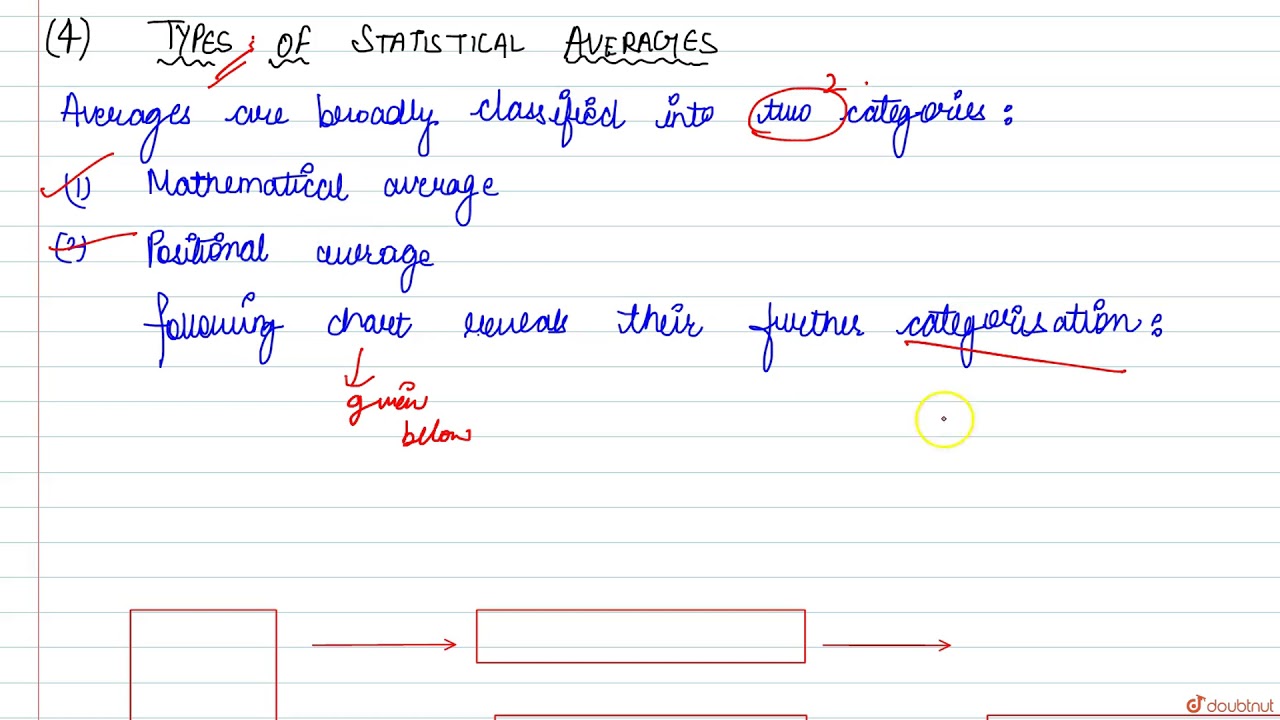 (4) TYPES OF STATISTICAL AVERAGES
2
Averages are broadly classified into two categories:
(1) Mathematical average
(2) Positional average
following chart reveals their further categorisation:
given
below
doubtnut